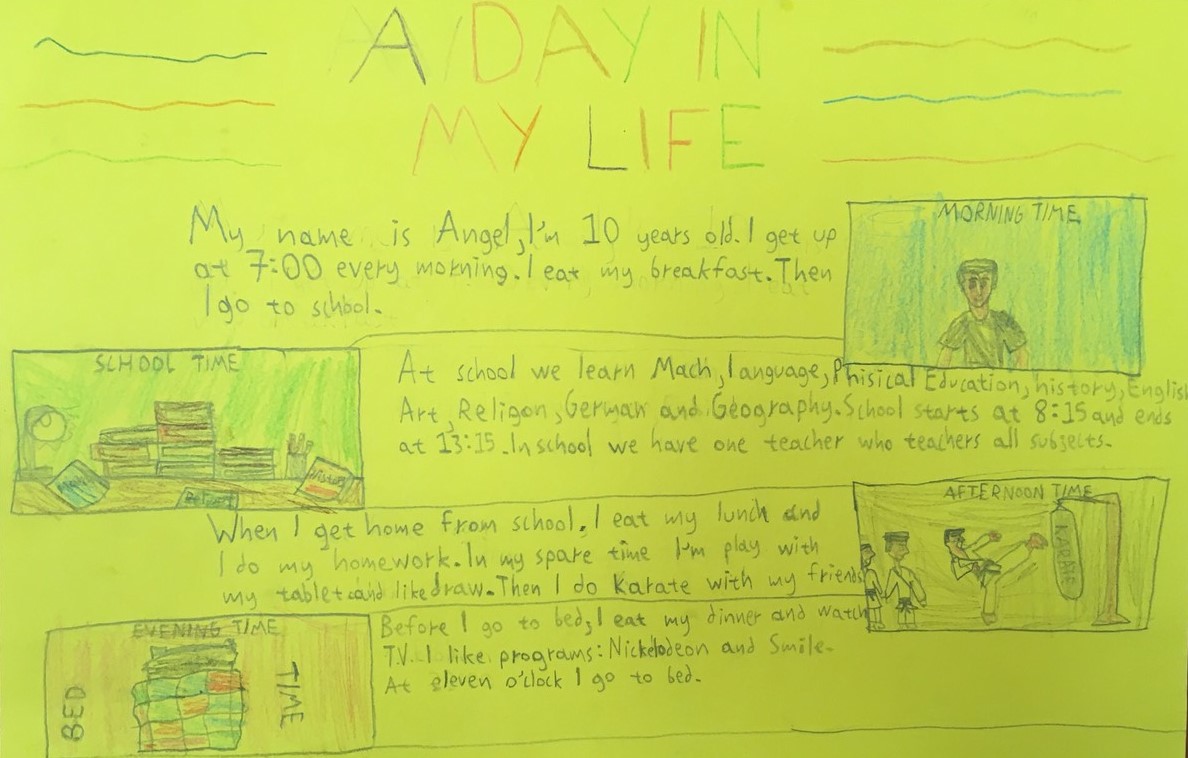 A DAY IN
MY LIFE
My name is Angel, I'm 10 years old. I get up
at 7:00 every morning. I eat my breakfast. Then
I go to school.
MORNING TIME
SCHOOL TIME
History
At school we learn Mach, language, Phisical Education, history, English
Art, Religon, German and Geography. School starts at 8:15 and ends
at 13:15. In school we have one teacher who teachers all subjects.
When I get home from school, I eat my lunch and
I do my homework. In my spare time I'm play with
my tablet and like draw. Then I do Karate with my friends
AFTERNOON TIME
KARATE
EVENING TIME
BED
TIME
Before I go to bed, I eat my dinner and watch
TV. I like programs: Nickelodeon and Smile.
At eleven o'clock I go to bed.